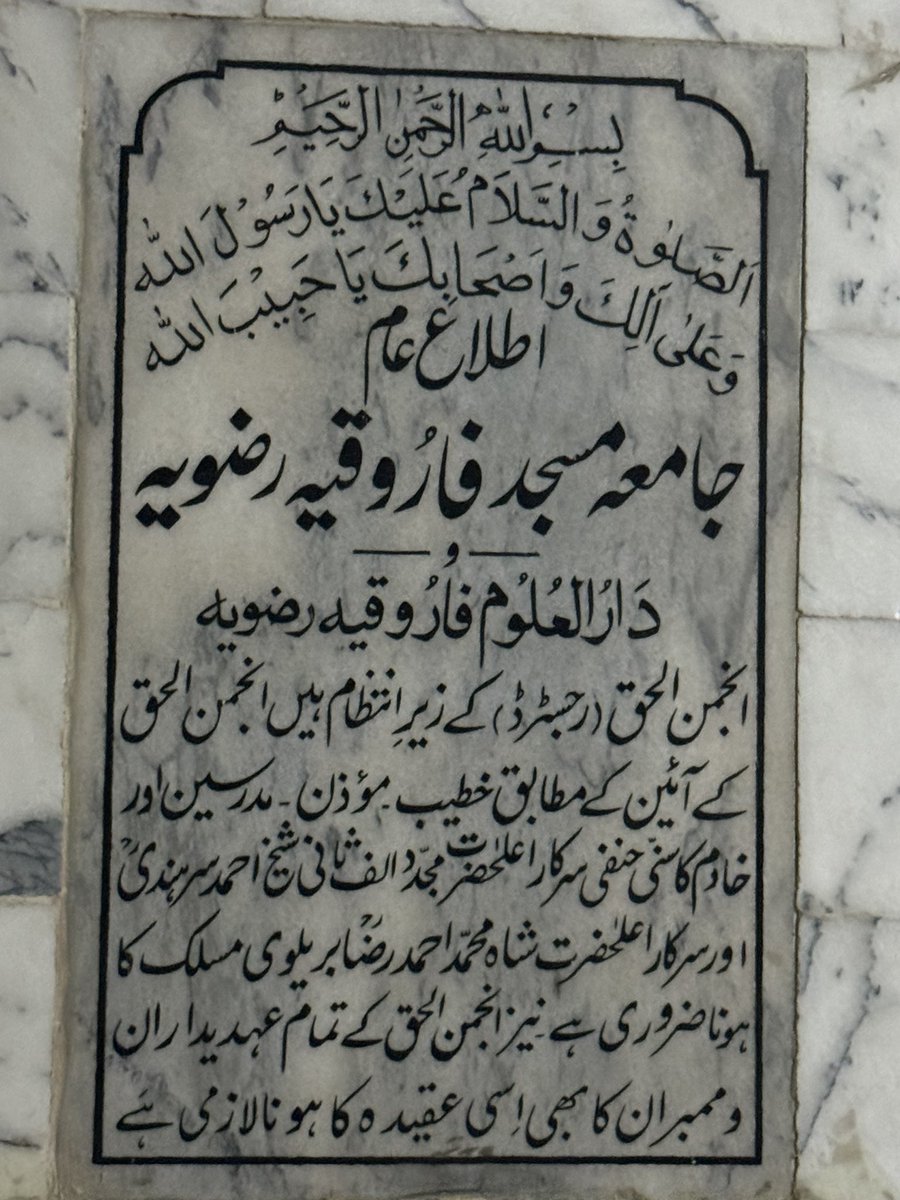 بِسْمِ اللّٰهِ الرَّحْمٰنِ الرَّحِيْمِ
اَلصَّلٰوةُ وَ السَّلَامُ عَلَيْكَ يَا رَسُوْلَ اللّٰه
وَعَلٰى اٰلِكَ وَ اَصْحَابِكَ يَا حَبِيْبَ اللّٰه
اطلاع عام
جامعہ مسجد فارُوقیہ رضویہ
و
دَارُ العُلُوم فارُوقیہ رضویہ
انجمن الحق (رجسٹرڈ) کے زیرِ انتظام ہیں انجمن الحق
کے آئین کے مطابق خطیب ۔ مؤذن ۔ مدرسین اور
خادم کا سنّی حنفی سرکار اعلٰحضرت مجدّد الف ثانی شیخ احمد سرہندیؒ
اور سرکار اعلٰحضرت شاہ محمّد احمد رضاؒ بریلوی مسلک کا
ہونا ضروری ہے ۔ نیز انجمن الحق کے تمام عہدیداران
و ممبران کا بھی اِسی عقیدہ کا ہونا لازمی ہَے